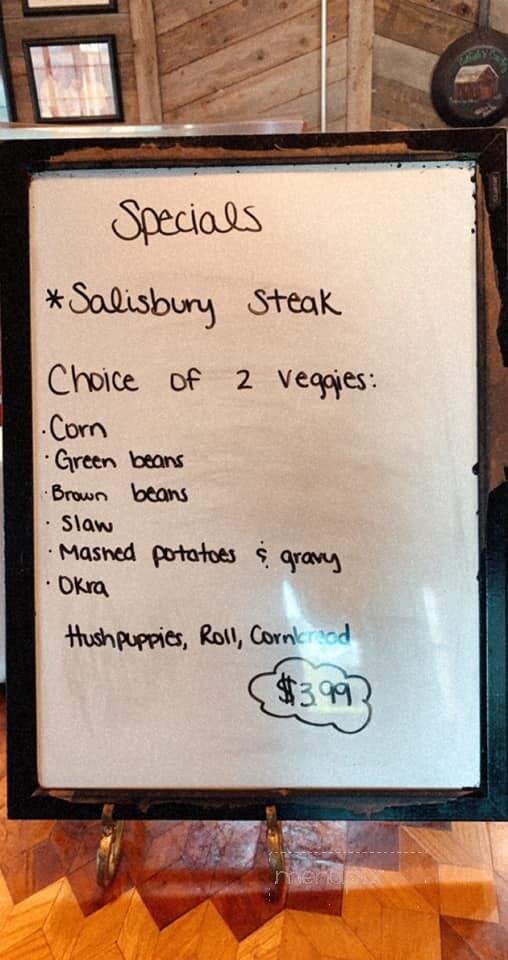 Specials
*Salisbury Steak
Choice of 2 veggies:
· Corn
· Green beans
· Brown beans
· Slaw
· Mashed potatoes & gravy
· Okra
Hushpuppies, Roll, Cornbread
$3.99